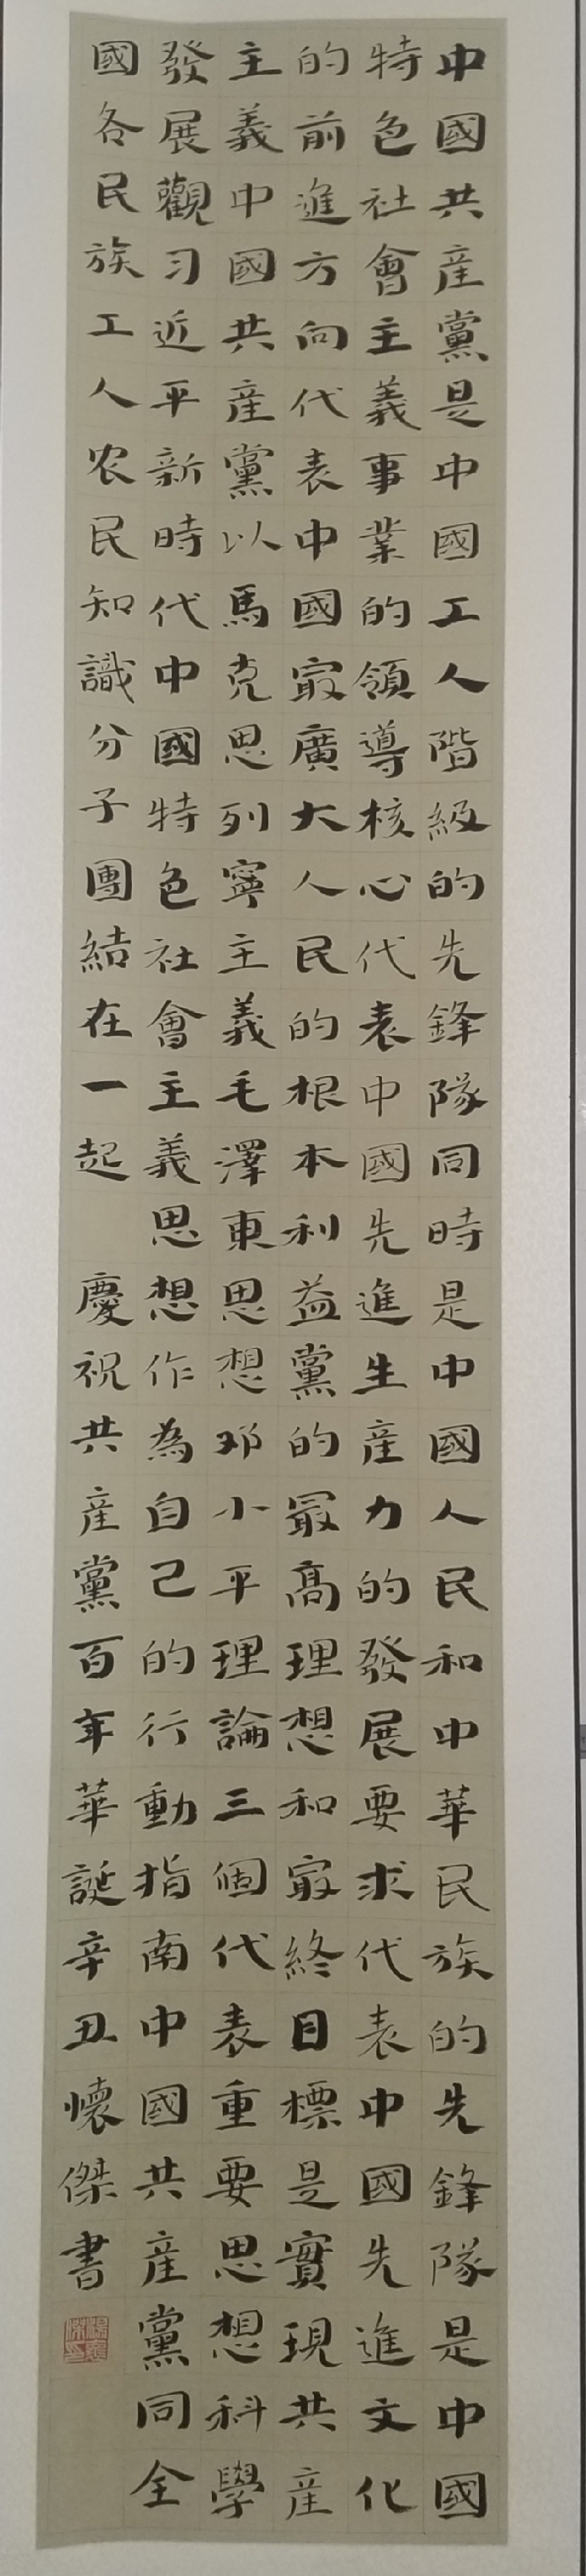 中國共産黨是中國工人階級的先鋒隊同時是中國人民和中華民族的先鋒隊是中國
特色社會主義事業的領導核心代表中國先進生産力的發展要求代表中國先進文化
的前進方向代表中國㝡廣大人民的根本利益黨的㝡高理想和㝡終目標是實現共産
主義中國共産黨以馬克思列寧主義毛澤東思想邓小平理論三個代表重要思想科學
發展觀习近平新時代中國特色社會主義思想作為自己的行動指南中國共産黨同全
國各民族工人农民知識分子團結在一起 慶祝共産黨百年華誕辛丑懷傑書